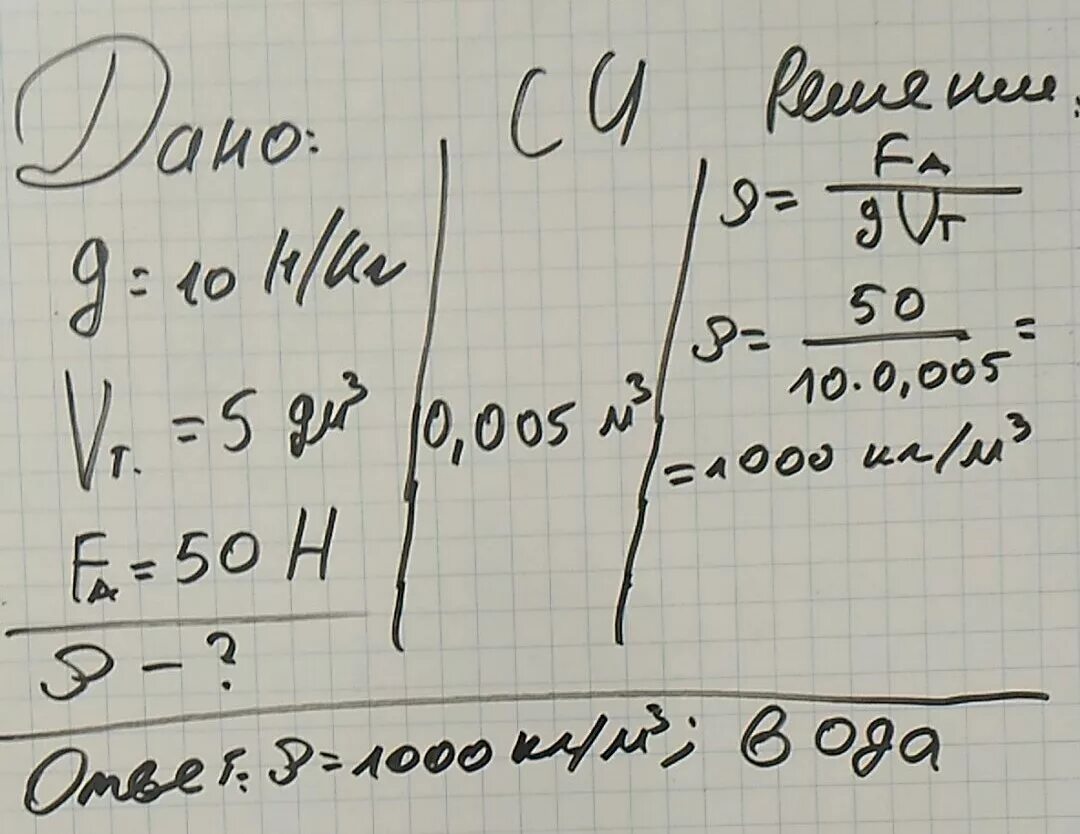 Дано:
g = 10 Н/кг
Vт. = 5 дм³
FA = 50 Н
ρ - ?
СИ
0,005 м³
Решение:
ρ = FA / gVт
ρ = 50 / 10·0,005 =
= 1000 кг/м³
Ответ: ρ = 1000 кг/м³; вода